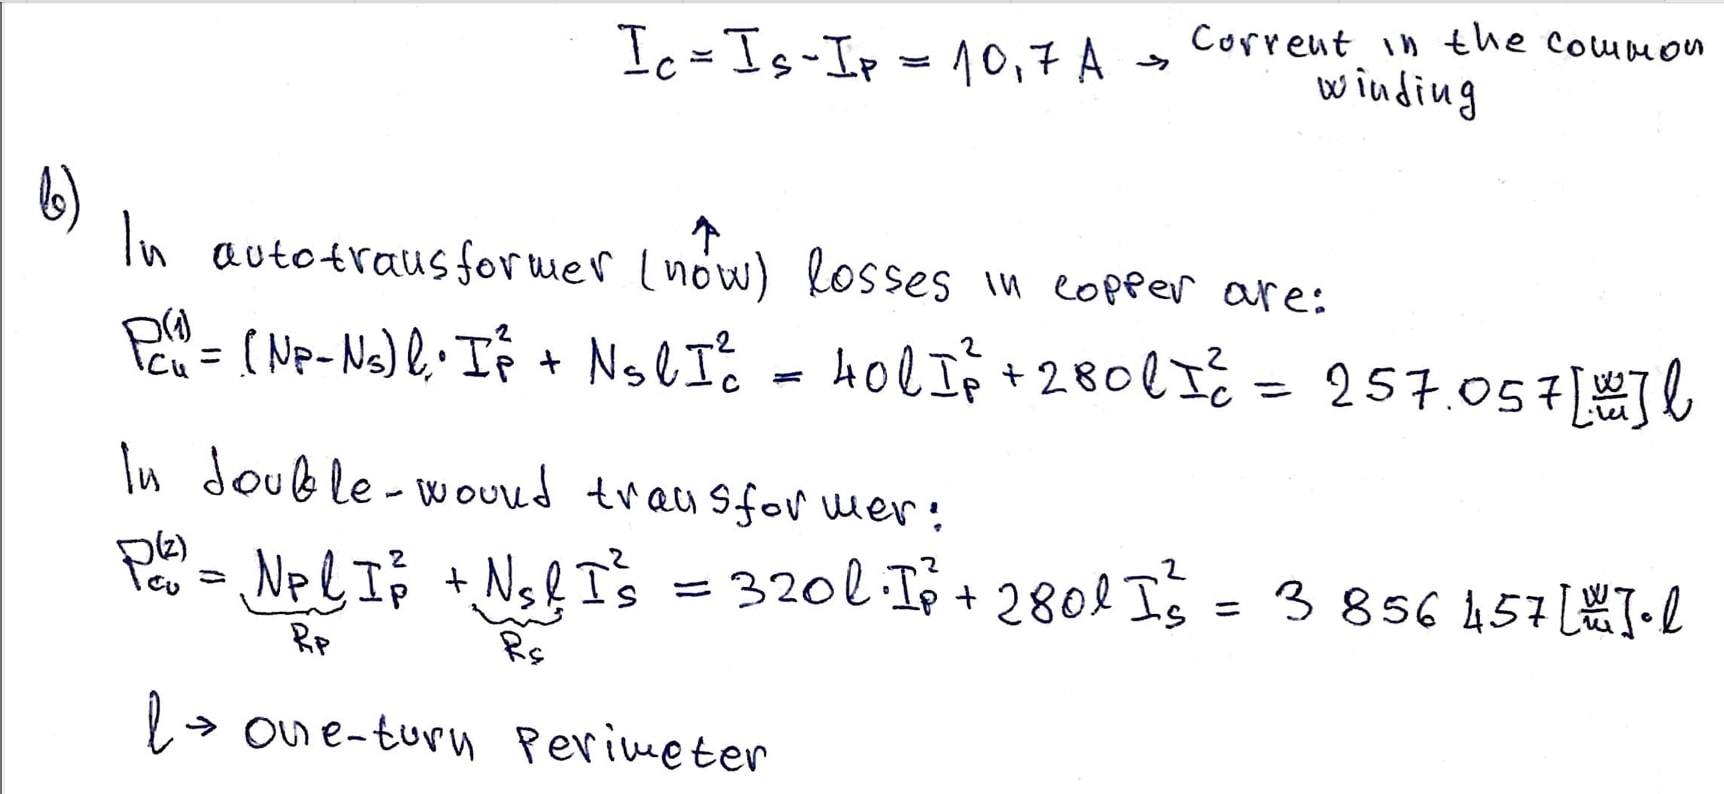 I_c = I_s - I_p = 10,7 A → Current in the common
winding
b)
In autotransformer (now) losses in copper are:
P_cu^(1) = (N_P - N_S) l · I_P^2 + N_S l I_c^2 = 40 l I_P^2 + 280 l I_c^2 = 257.057 [W/m] l
In double-wound transformer:
P_cu^(2) = N_P l I_P^2 + N_S l I_S^2 = 320 l · I_P^2 + 280 l I_S^2 = 3 856 457 [W/m] · l
R_P R_S
l → one-turn perimeter